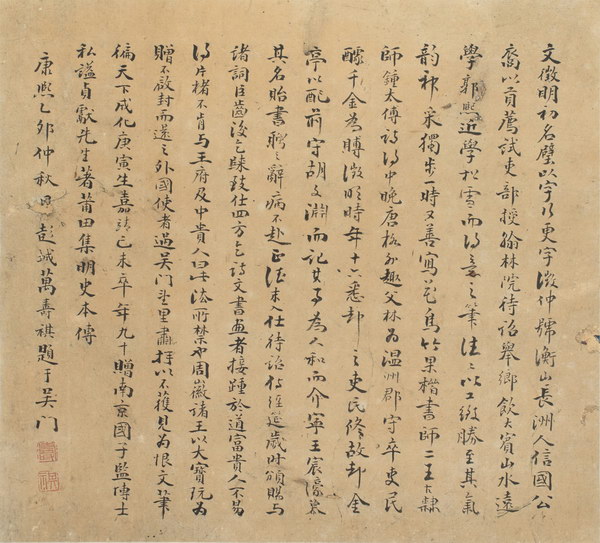 文徵明初名璧以字行更字徵仲號衡山長洲人信國公
裔以貢薦試吏部授翰林院待詔舉鄉飲大賓山水遠
學郭熙近學松雪而得意之筆往往以工緻勝至其氣
韵神采獨步一時又善寫花鳥竹果楷書師二王古隸
師鍾太傅詩得中晚唐格外趣父林為溫州郡守卒吏民
醵千金為賻徵明時年十六悉却之吏民修故却金
亭以配前守胡文淵而記其事為人和而介寧王宸濠慕
其名貽書聘之辭病不赴正德末入仕待詔侍經筵歲時頒賜與
諸詞臣齒後乞歸致仕四方乞詩文書畫者接踵於道富貴人不易
得片楮不肯與王府及中貴人曰此法所禁也周徽諸王以大寶玩為
贈不啟封而還之外國使者過吳門望里肅拜以不獲見為恨文筆
徧天下成化庚寅生嘉靖己未卒年九十贈南京國子監博士
私謚貞獻先生著莆田集明史本傳
康熙乙卯仲秋日彭城萬壽祺題于吳门